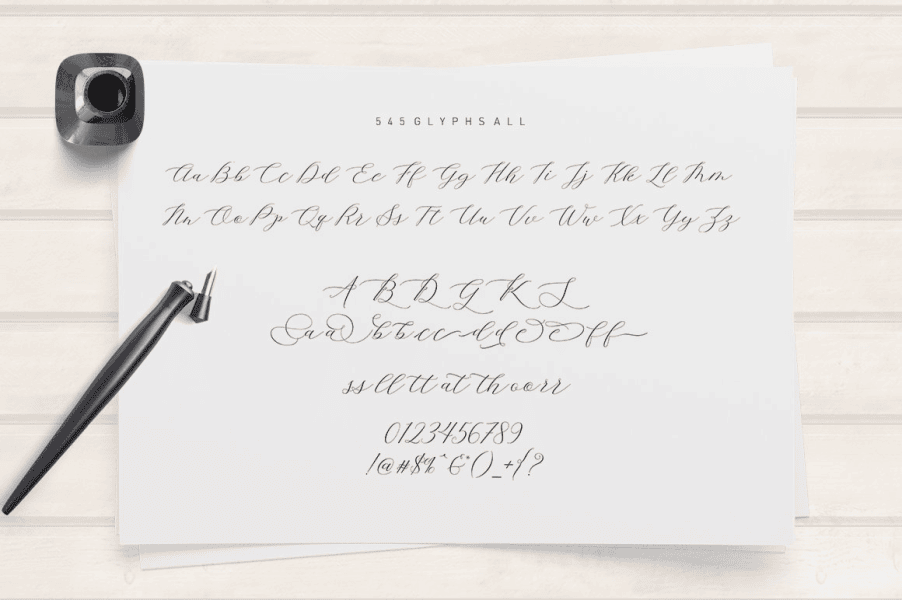 545GLYPHSALL
Aa Bb Cc Dd Ee Ff Gg Hh Ii Jj Kk Ll Mm
Nn Oo Pp Qq Rr Ss Tt Uu Vv Ww Xx Yy Zz
A B D G K L
a a b b c c d d e e f f
ss ll tt at th oo rr
0123456789
!@#$%^&*()_+{?